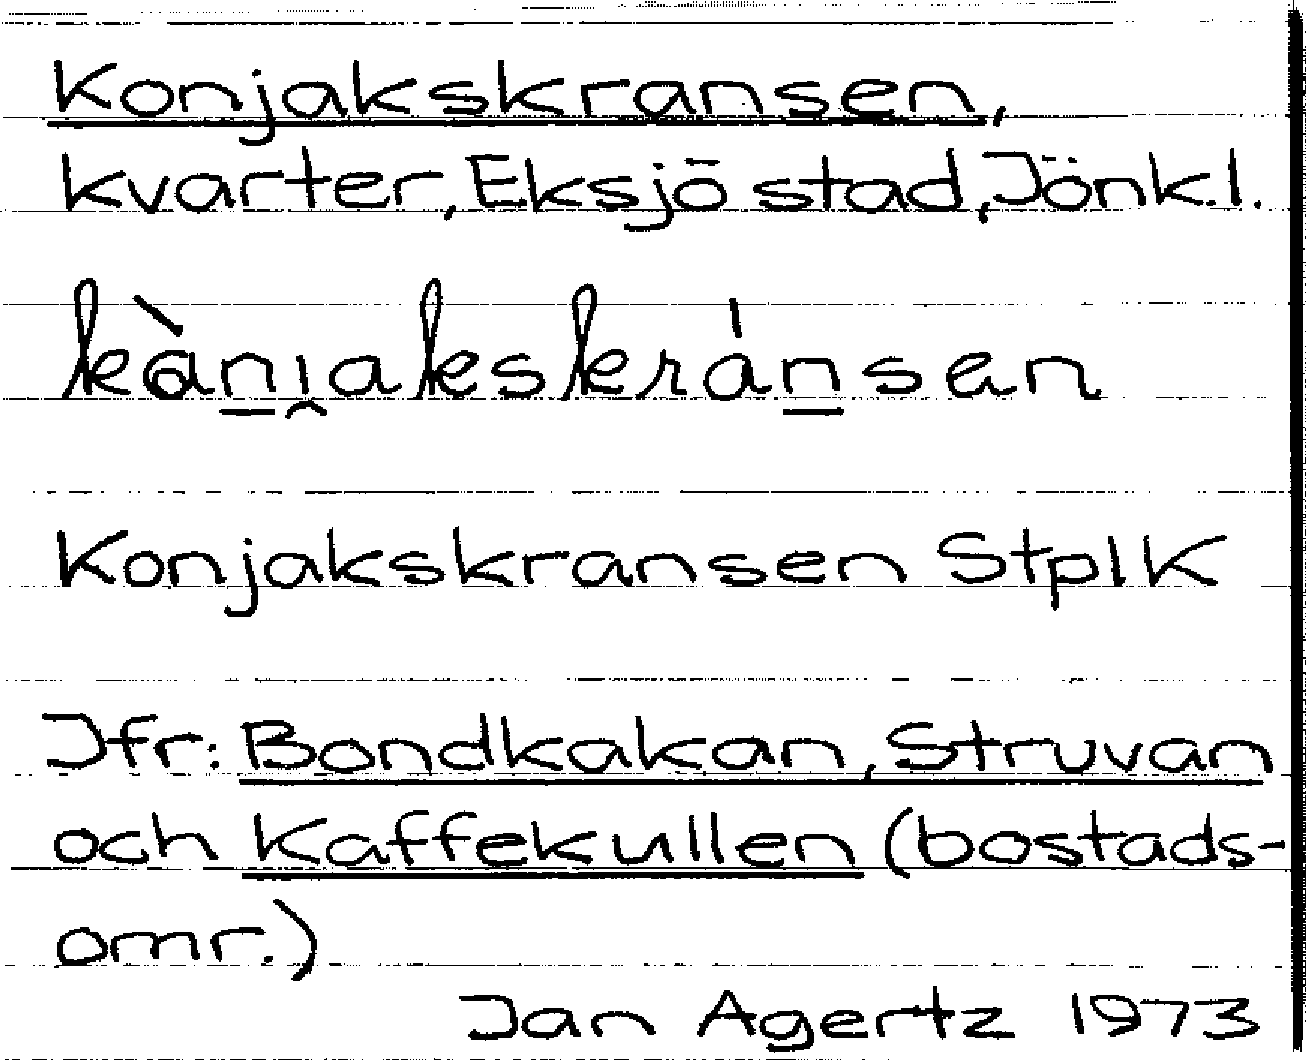 Konjakskransen,
kvarter, Eksjö stad, Jönk.l.
Konjakskransen StplK
Jfr: Bondkakan, Struvan
och Kaffekullen (bostads-
omr.)
Jan Agertz 1973